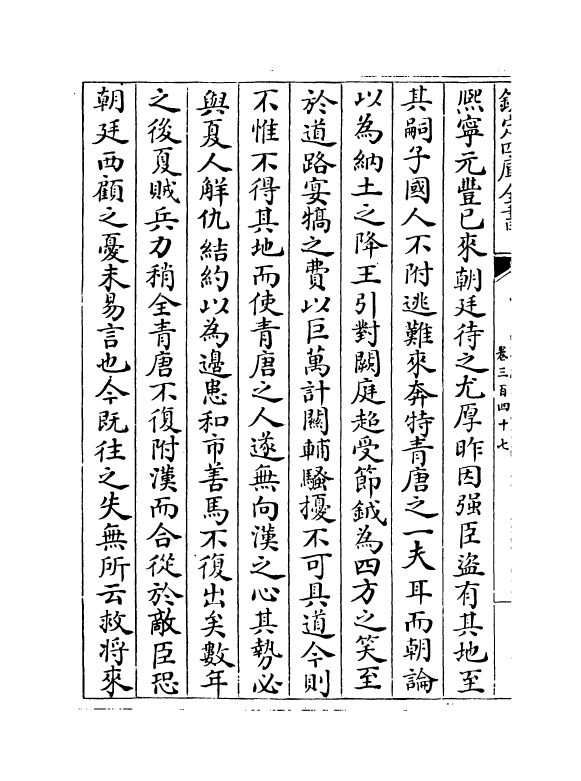 欽定四庫全書
卷三百四十七
熈寧元豐已來朝廷待之尤厚昨因强臣盗有其地至
其嗣子國人不附逃難來奔特青唐之一夫耳而朝論
以為納土之降王引對闕庭超受節鉞為四方之笑至
於道路宴犒之費以巨萬計關輔騷擾不可具道今則
不惟不得其地而使青唐之人遂無向漢之心其勢必
與夏人解仇結約以為邊患和市善馬不復出矣數年
之後夏賊兵力稍全青唐不復附漢而合從於敵臣恐
朝廷西顧之憂未易言也今既往之失無所云救將來